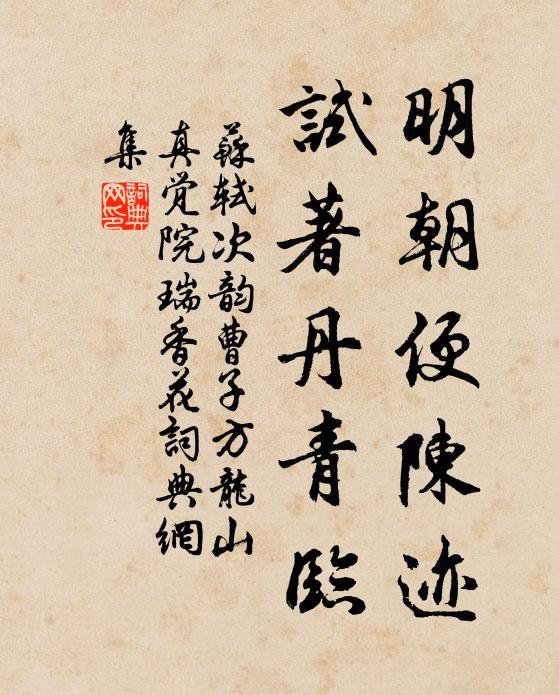 明朝便陳迹
試著丹青臨
蘇轼次韵曹子方龍山
真覚院瑞香花詞典網
集
詞典网印